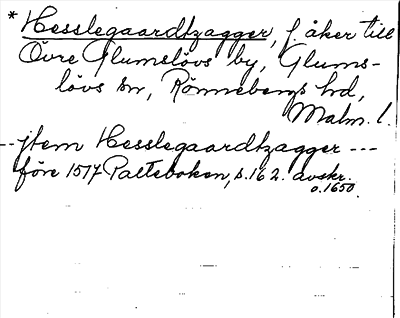 * Hesslegaardtzagger, f. åker till
Övre Glumslövs by, Glums-
lövs sn, Rönnebergs hd,
Malm. l.
--jtem Hesslegaardtzagger ---
före 1517 Palteboken, s. 162. avskr.
o. 1650.